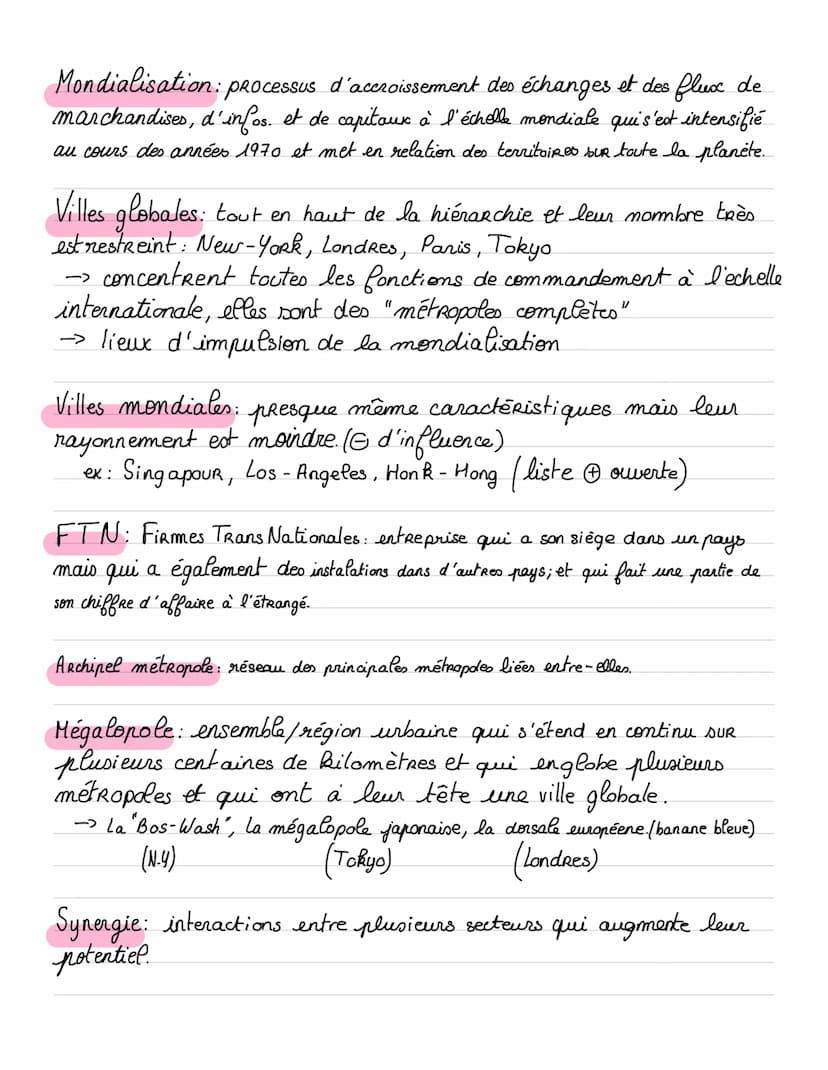 Mondialisation : processus d'accroissement des échanges et des flux de
marchandises, d'infos. et de capitaux à l'échelle mondiale qui s'est intensifié
au cours des années 1970 et met en relation des territoires sur toute la planète.
Villes globales : tout en haut de la hiérarchie et leur nommbre très
est restreint : New-York, Londres, Paris, Tokyo
-> concentrent toutes les fonctions de commandement à l'echelle
internationale, elles sont des "métropoles complètes"
-> lieux d'impulsion de la mondialisation
Villes mondiales : presque même caractéristiques mais leur
rayonnement est moindre. (⊖ d'influence)
ex : Singapour, Los-Angeles, Honk-Hong (liste ⊕ ouverte)
FTN : Firmes Trans Nationales : entreprise qui a son siège dans un pays
mais qui a également des instalations dans d'autres pays ; et qui fait une partie de
son chiffre d'affaire à l'étrangé.
Archipel métropole : réseau des principales métropoles liées entre-elles.
Mégalopole : ensemble/région urbaine qui s'étend en continu sur
plusieurs centaines de kilomètres et qui englobe plusieurs
métropoles et qui ont à leur tête une ville globale.
-> La "Bos-Wash", la mégalopole japonaise, la dorsale européene. (banane bleue)
(N.Y) (Tokyo) (Londres)
Synergie : interactions entre plusieurs secteurs qui augmente leur
potentiel.